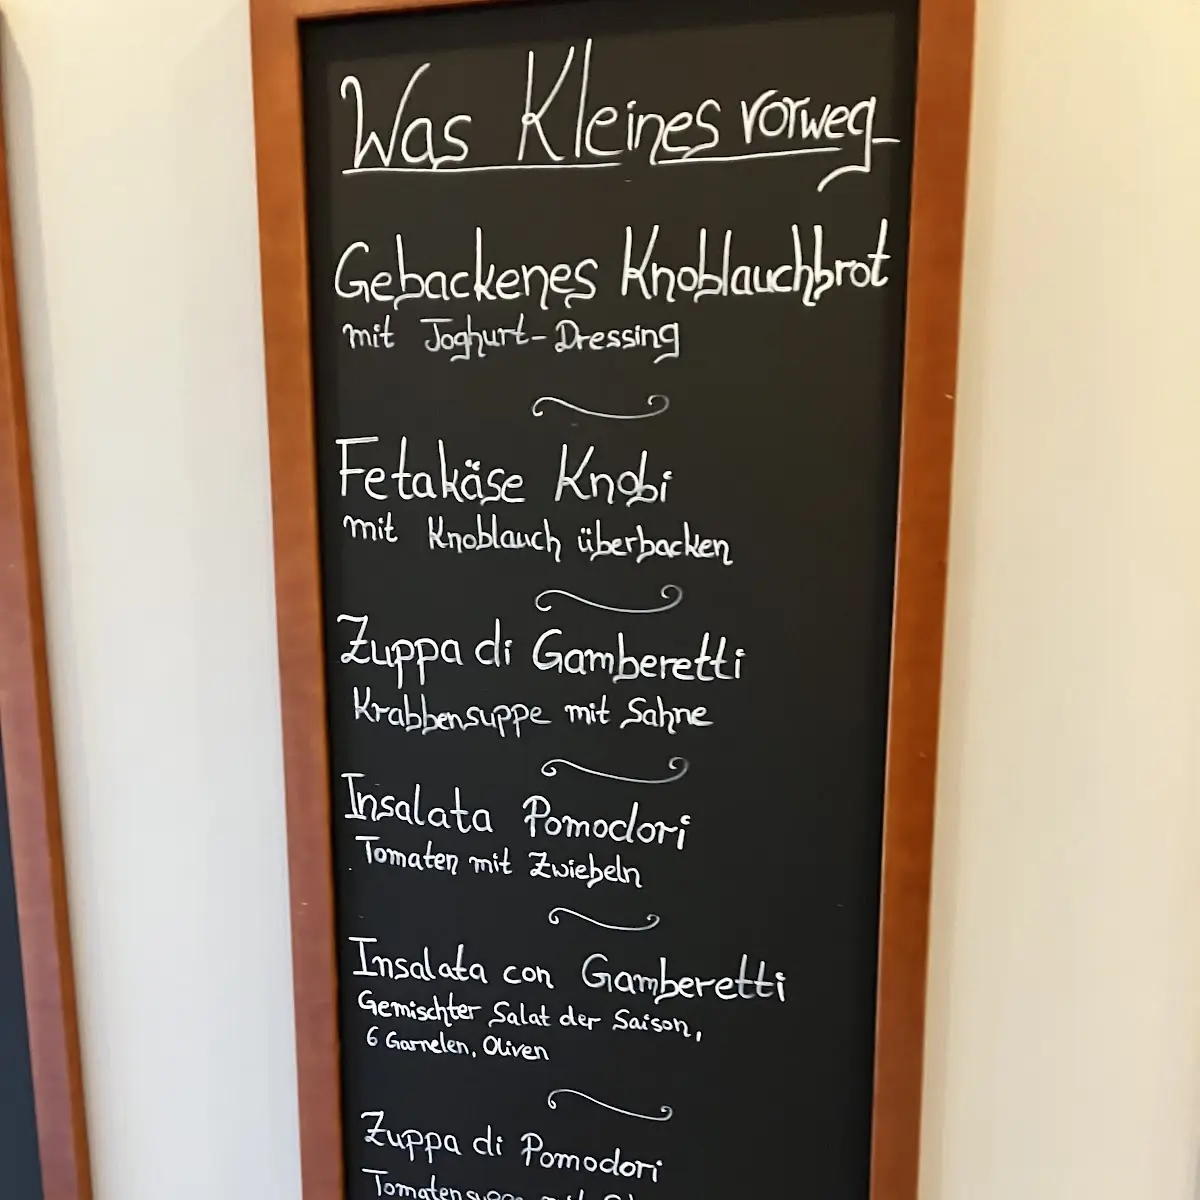 Was Kleines vorweg
Gebackenes Knoblauchbrot
mit Joghurt-Dressing
Fetakäse Knobi
mit Knoblauch überbacken
Zuppa di Gamberetti
Krabbensuppe mit Sahne
Insalata Pomodori
Tomaten mit Zwiebeln
Insalata con Gamberetti
Gemischter Salat der Saison,
6 Garnelen, Oliven
Zuppa di Pomodori
Tomatensuppe mit